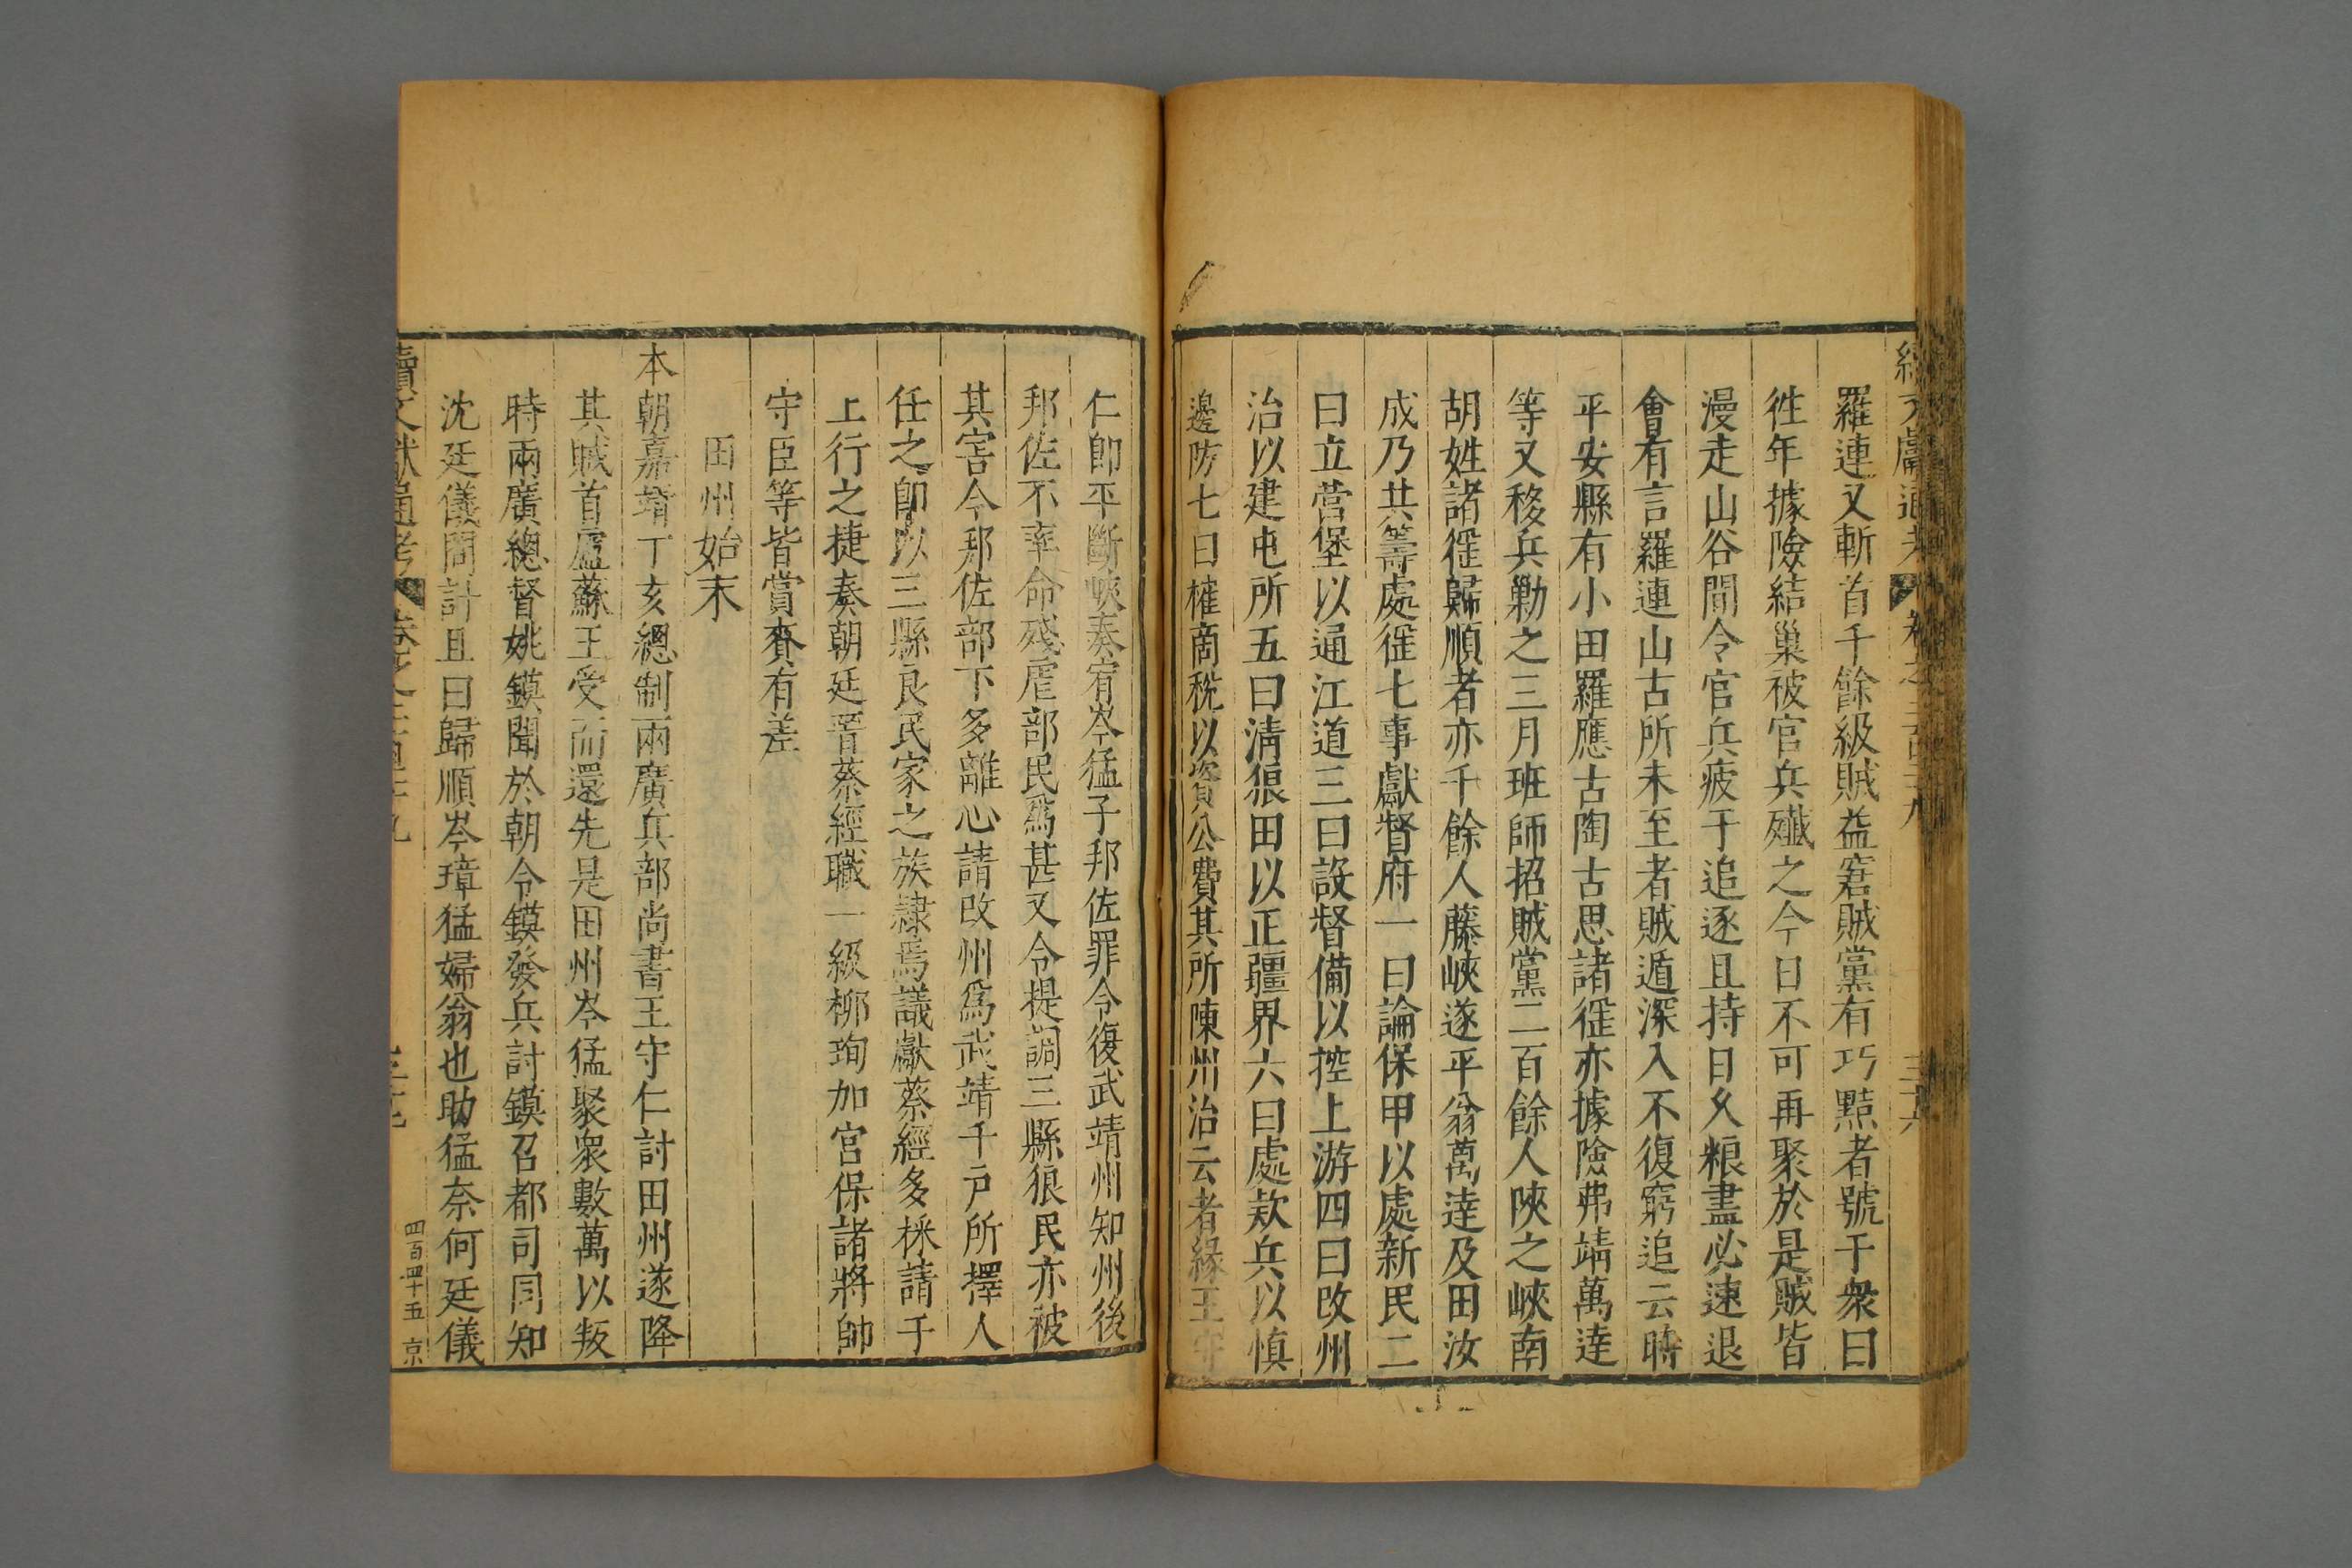 羅連又斬首千餘級賊益窘賊黨有巧黠者號于衆曰
徃年據險結巢被官兵殱之今日不可再聚於是賊皆
漫走山谷間令官兵疲于追逐且持日久粮盡必速退
會有言羅連山古所未至者賊遁深入不復窮追云時
平安縣有小田羅應古陶古思諸徭亦據險弗靖萬達
等又移兵勦之三月班師招賊黨二百餘人陝之峽南
胡姓諸徭歸順者亦千餘人藤峽遂平翁萬達及田汝
成乃共籌處徭七事獻督府一曰論保甲以處新民二
曰立營堡以通江道三曰設督備以控上游四曰改州
治以建屯所五曰淸狼田以正疆界六曰處欵兵以慎
邊防七曰榷商稅以資公費其所陳州治云者緣王守
仁卽平斷峽奏宥岑猛子邦佐罪令復武靖州知州後
邦佐不率命殘虐部民爲甚又令提調三縣狼民亦被
其害今邦佐部下多離心請改州爲武靖千戸所擇人
任之卽以三縣良民家之族隷焉議獻蔡經多採請于
上行之捷奏朝廷晋蔡經職一級柳珣加宮保諸將帥
守臣等皆賞賚有差
田州始末
本朝嘉靖丁亥總制兩廣兵部尚書王守仁討田州遂降
其賊首盧蘇王受而還先是田州岑猛聚衆數萬以叛
時兩廣總督姚鏌聞於朝令鏌發兵討鏌召都司同知
沈廷儀問計且曰歸順岑璋猛婦翁也助猛奈何廷儀
續文獻通考
四百四十五 京